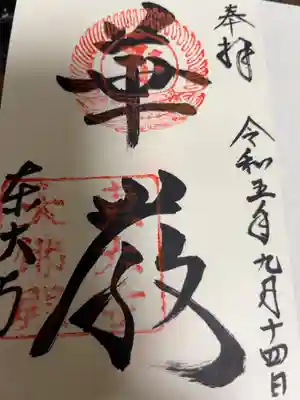 奉拝
令和五年九月十四日
華厳
东大寺